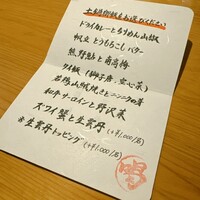 土鍋御飯をお選びください
ドライカレーとちりめん山椒
帆立とうもろこしバター
熊野鮎と南高梅
クイ飯(獅子唐、空心菜)
若鶏山賊焼きとニンニクの芽
和牛サーロインと野沢菜
ズワイ蟹と生雲丹 (+¥1,000/名)
※生雲丹トッピング (+¥1,000/名)